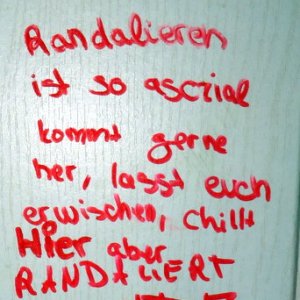 Randalieren
ist so asczial
kommt gerne
her, lasst euch
erwischen, chillt
Hier aber
RANDALIERT